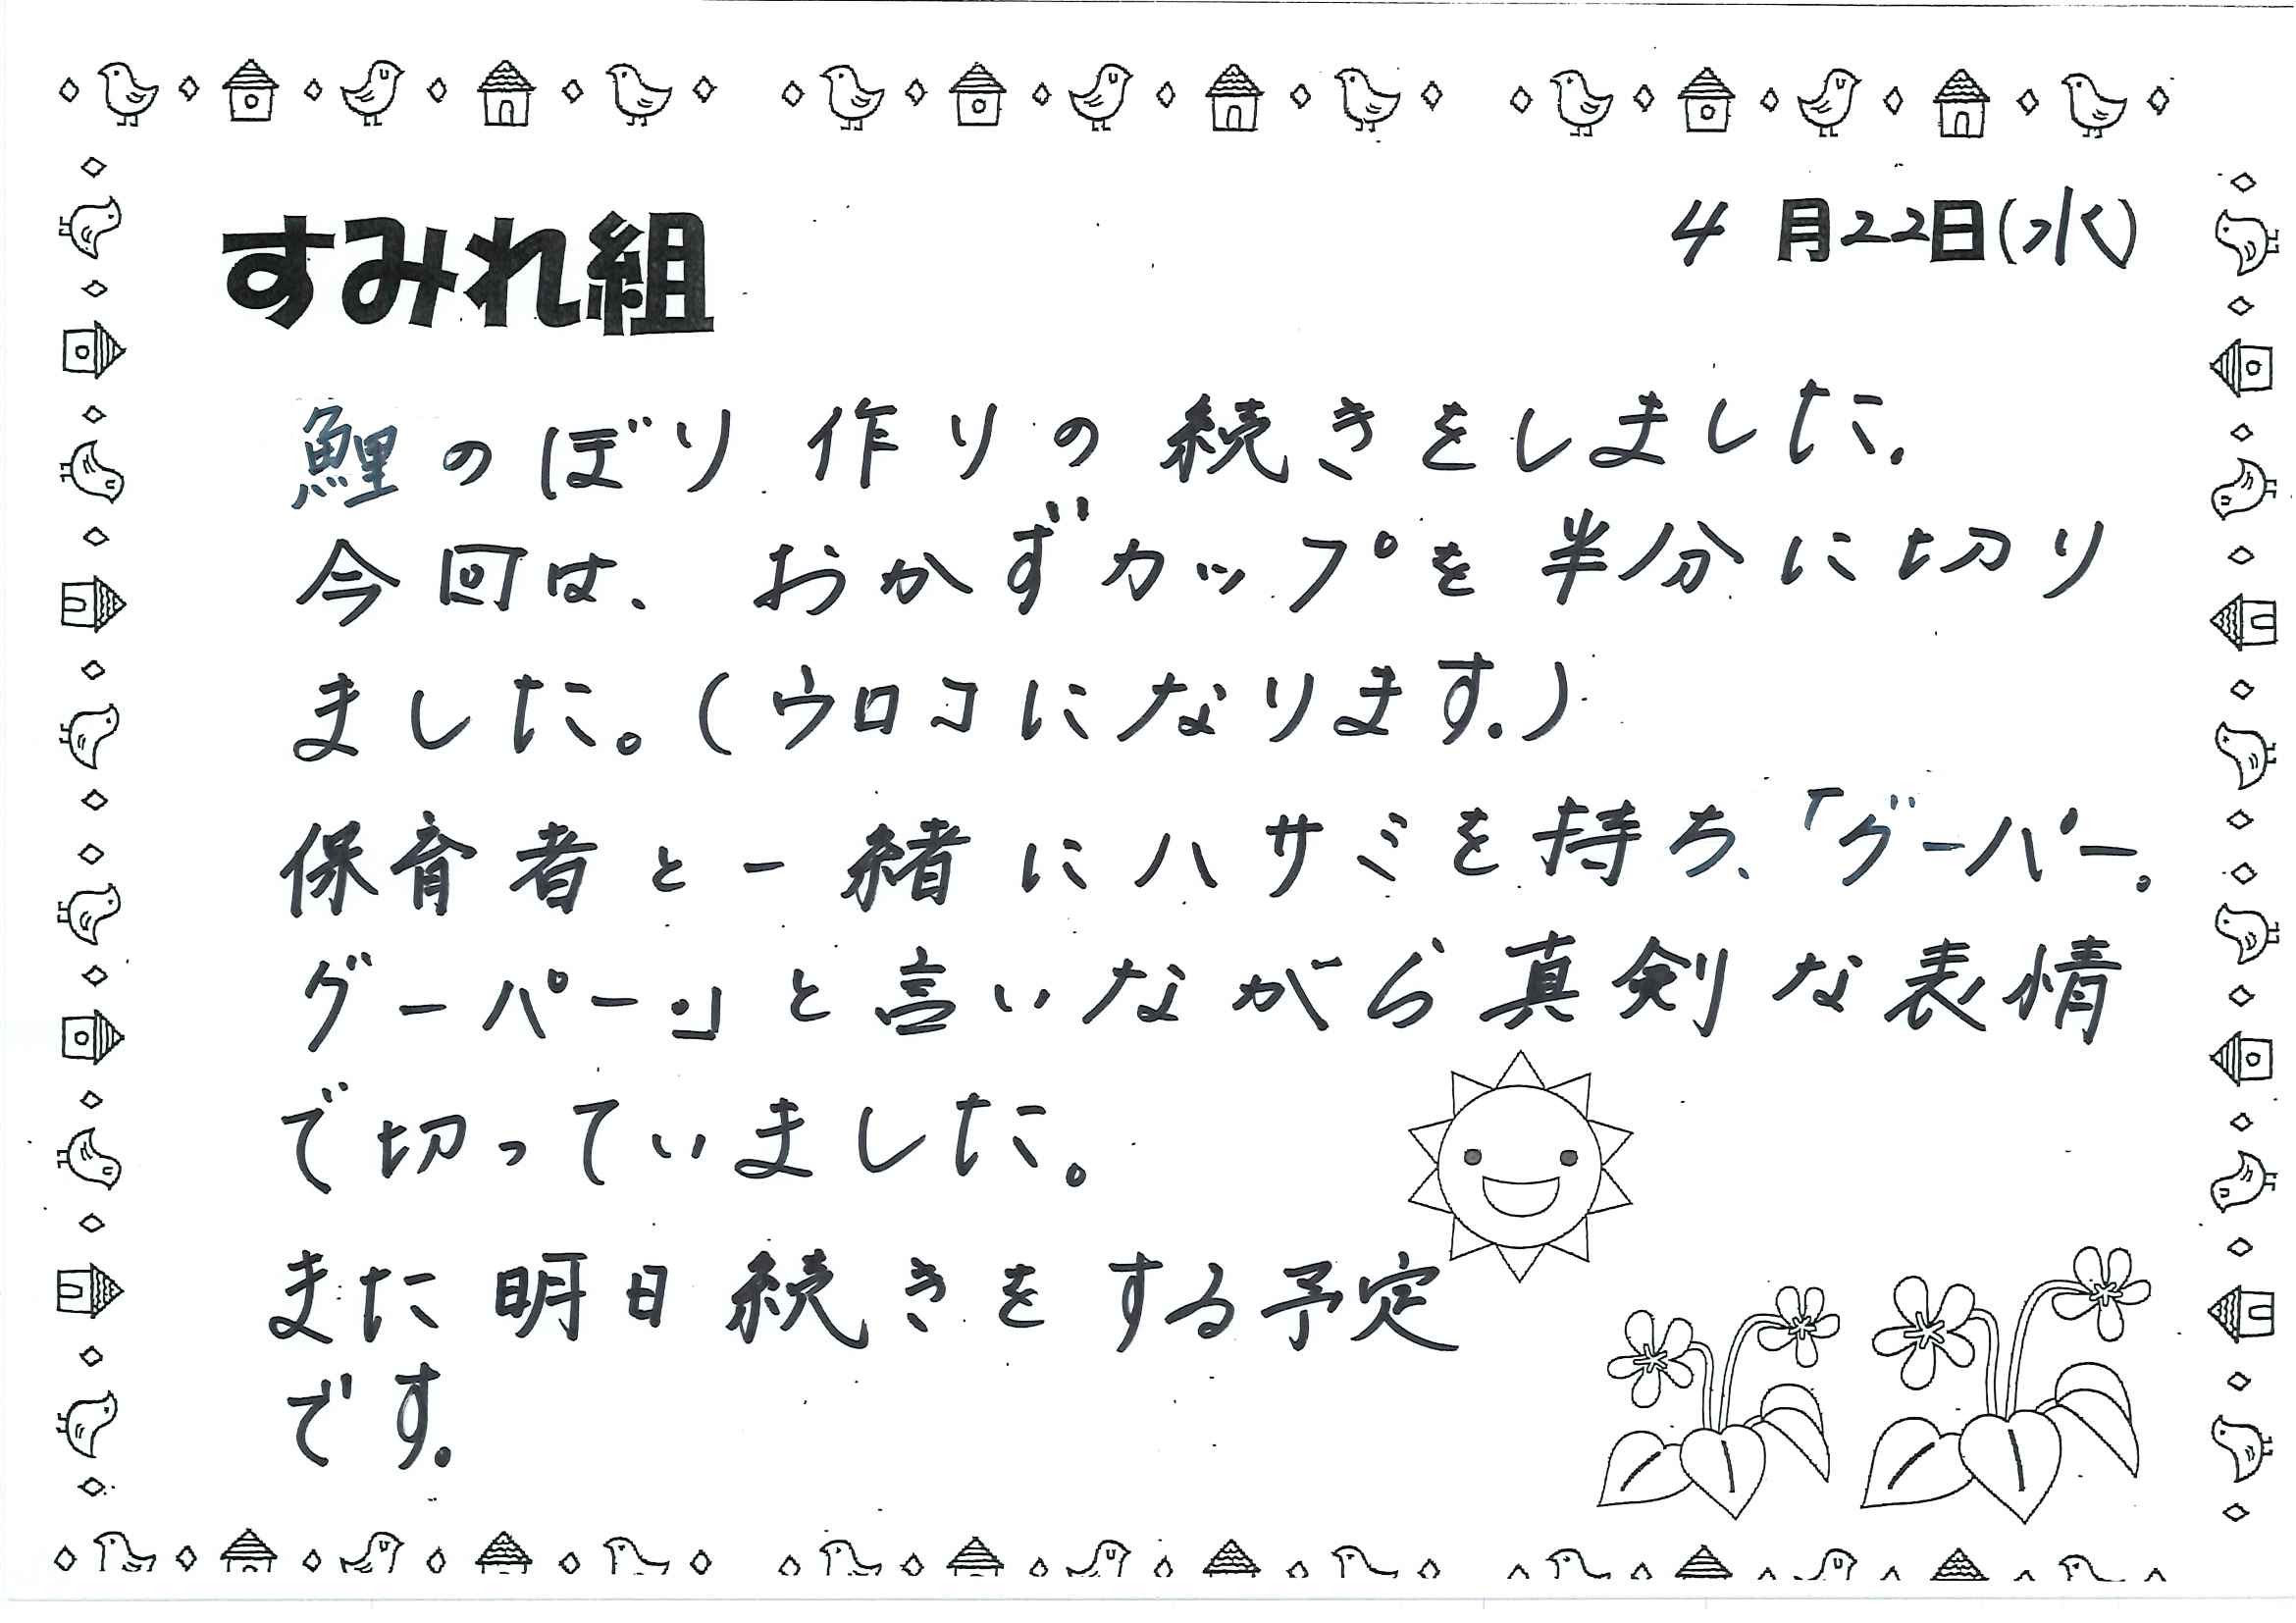 すみれ組
4月22日(水)
鯉のぼり作りの続きをしました。
今回は、おかずカップを半分に切り
ました。(ウロコになります。)
保育者と一緒にハサミを持ち、「グーパー。
グーパー。」と言いながら真剣な表情
で切っていました。
また明日続きをする予定
です。